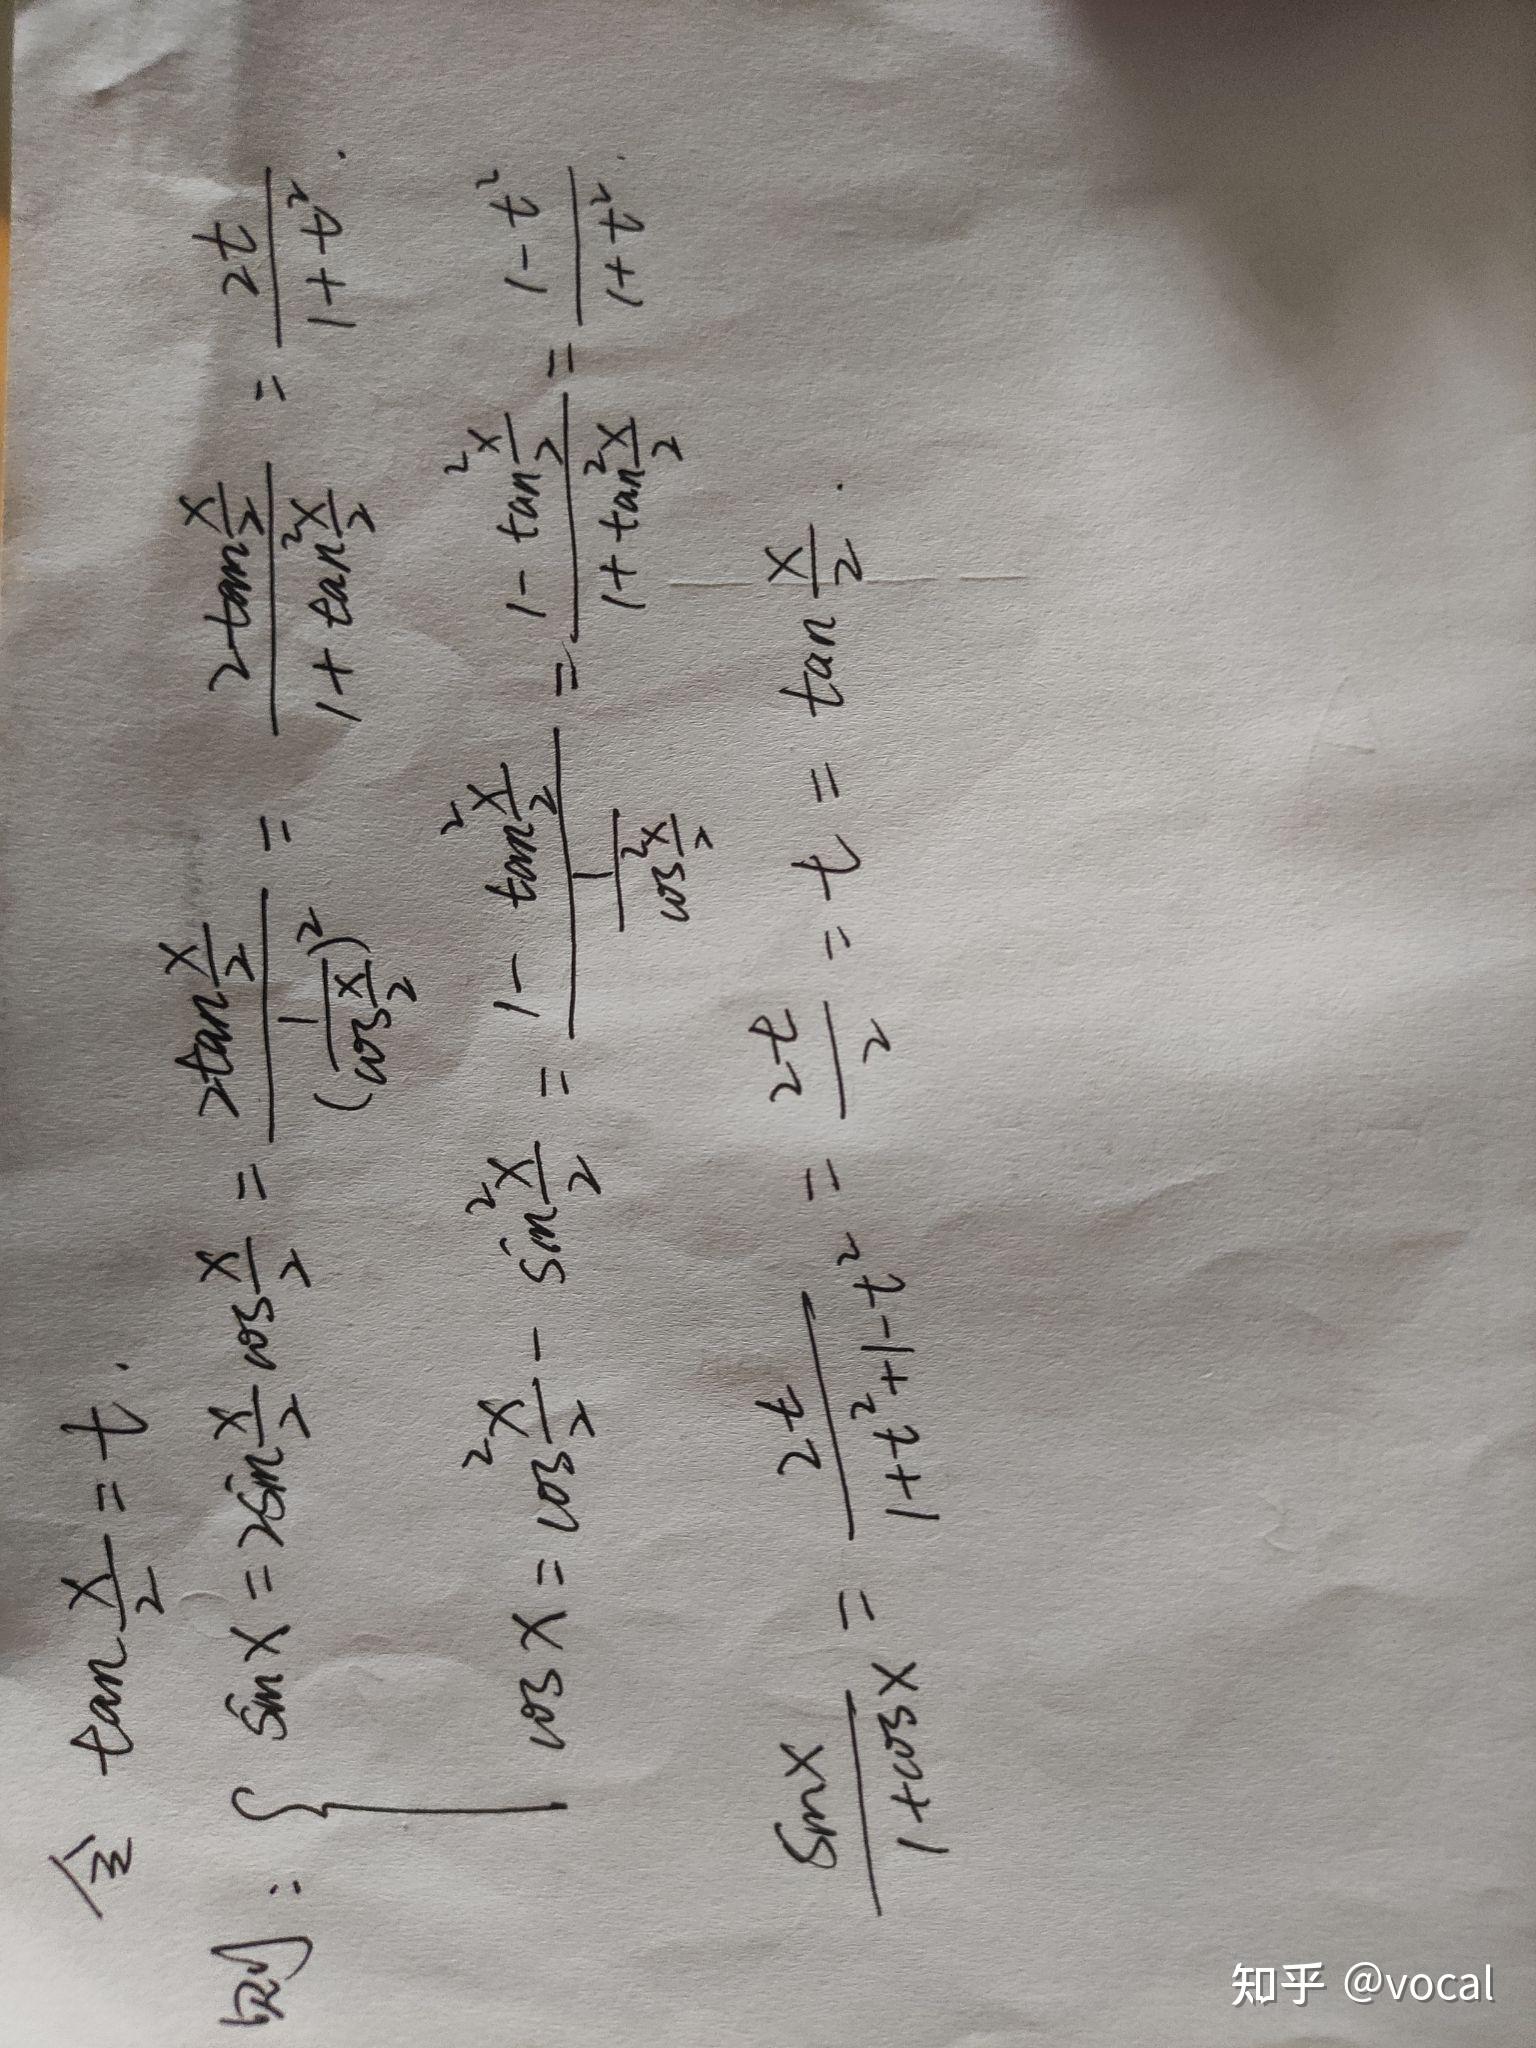 令 tan x/2 = t.
则: { sin x = 2sin x/2 cos x/2 = 2tan x/2 / (1/cos x/2)² = 2tan x/2 / 1+tan² x/2 = 2t / 1+t².
cos x = cos² x/2 - sin² x/2 = 1 - tan² x/2 / 1/cos² x/2 = 1 - tan² x/2 / 1+tan² x/2 = 1-t² / 1+t².
sin x / 1+cos x = 2t / 1+t²+1-t² = 2t / 2 = t = tan x/2.
知乎 @vocal